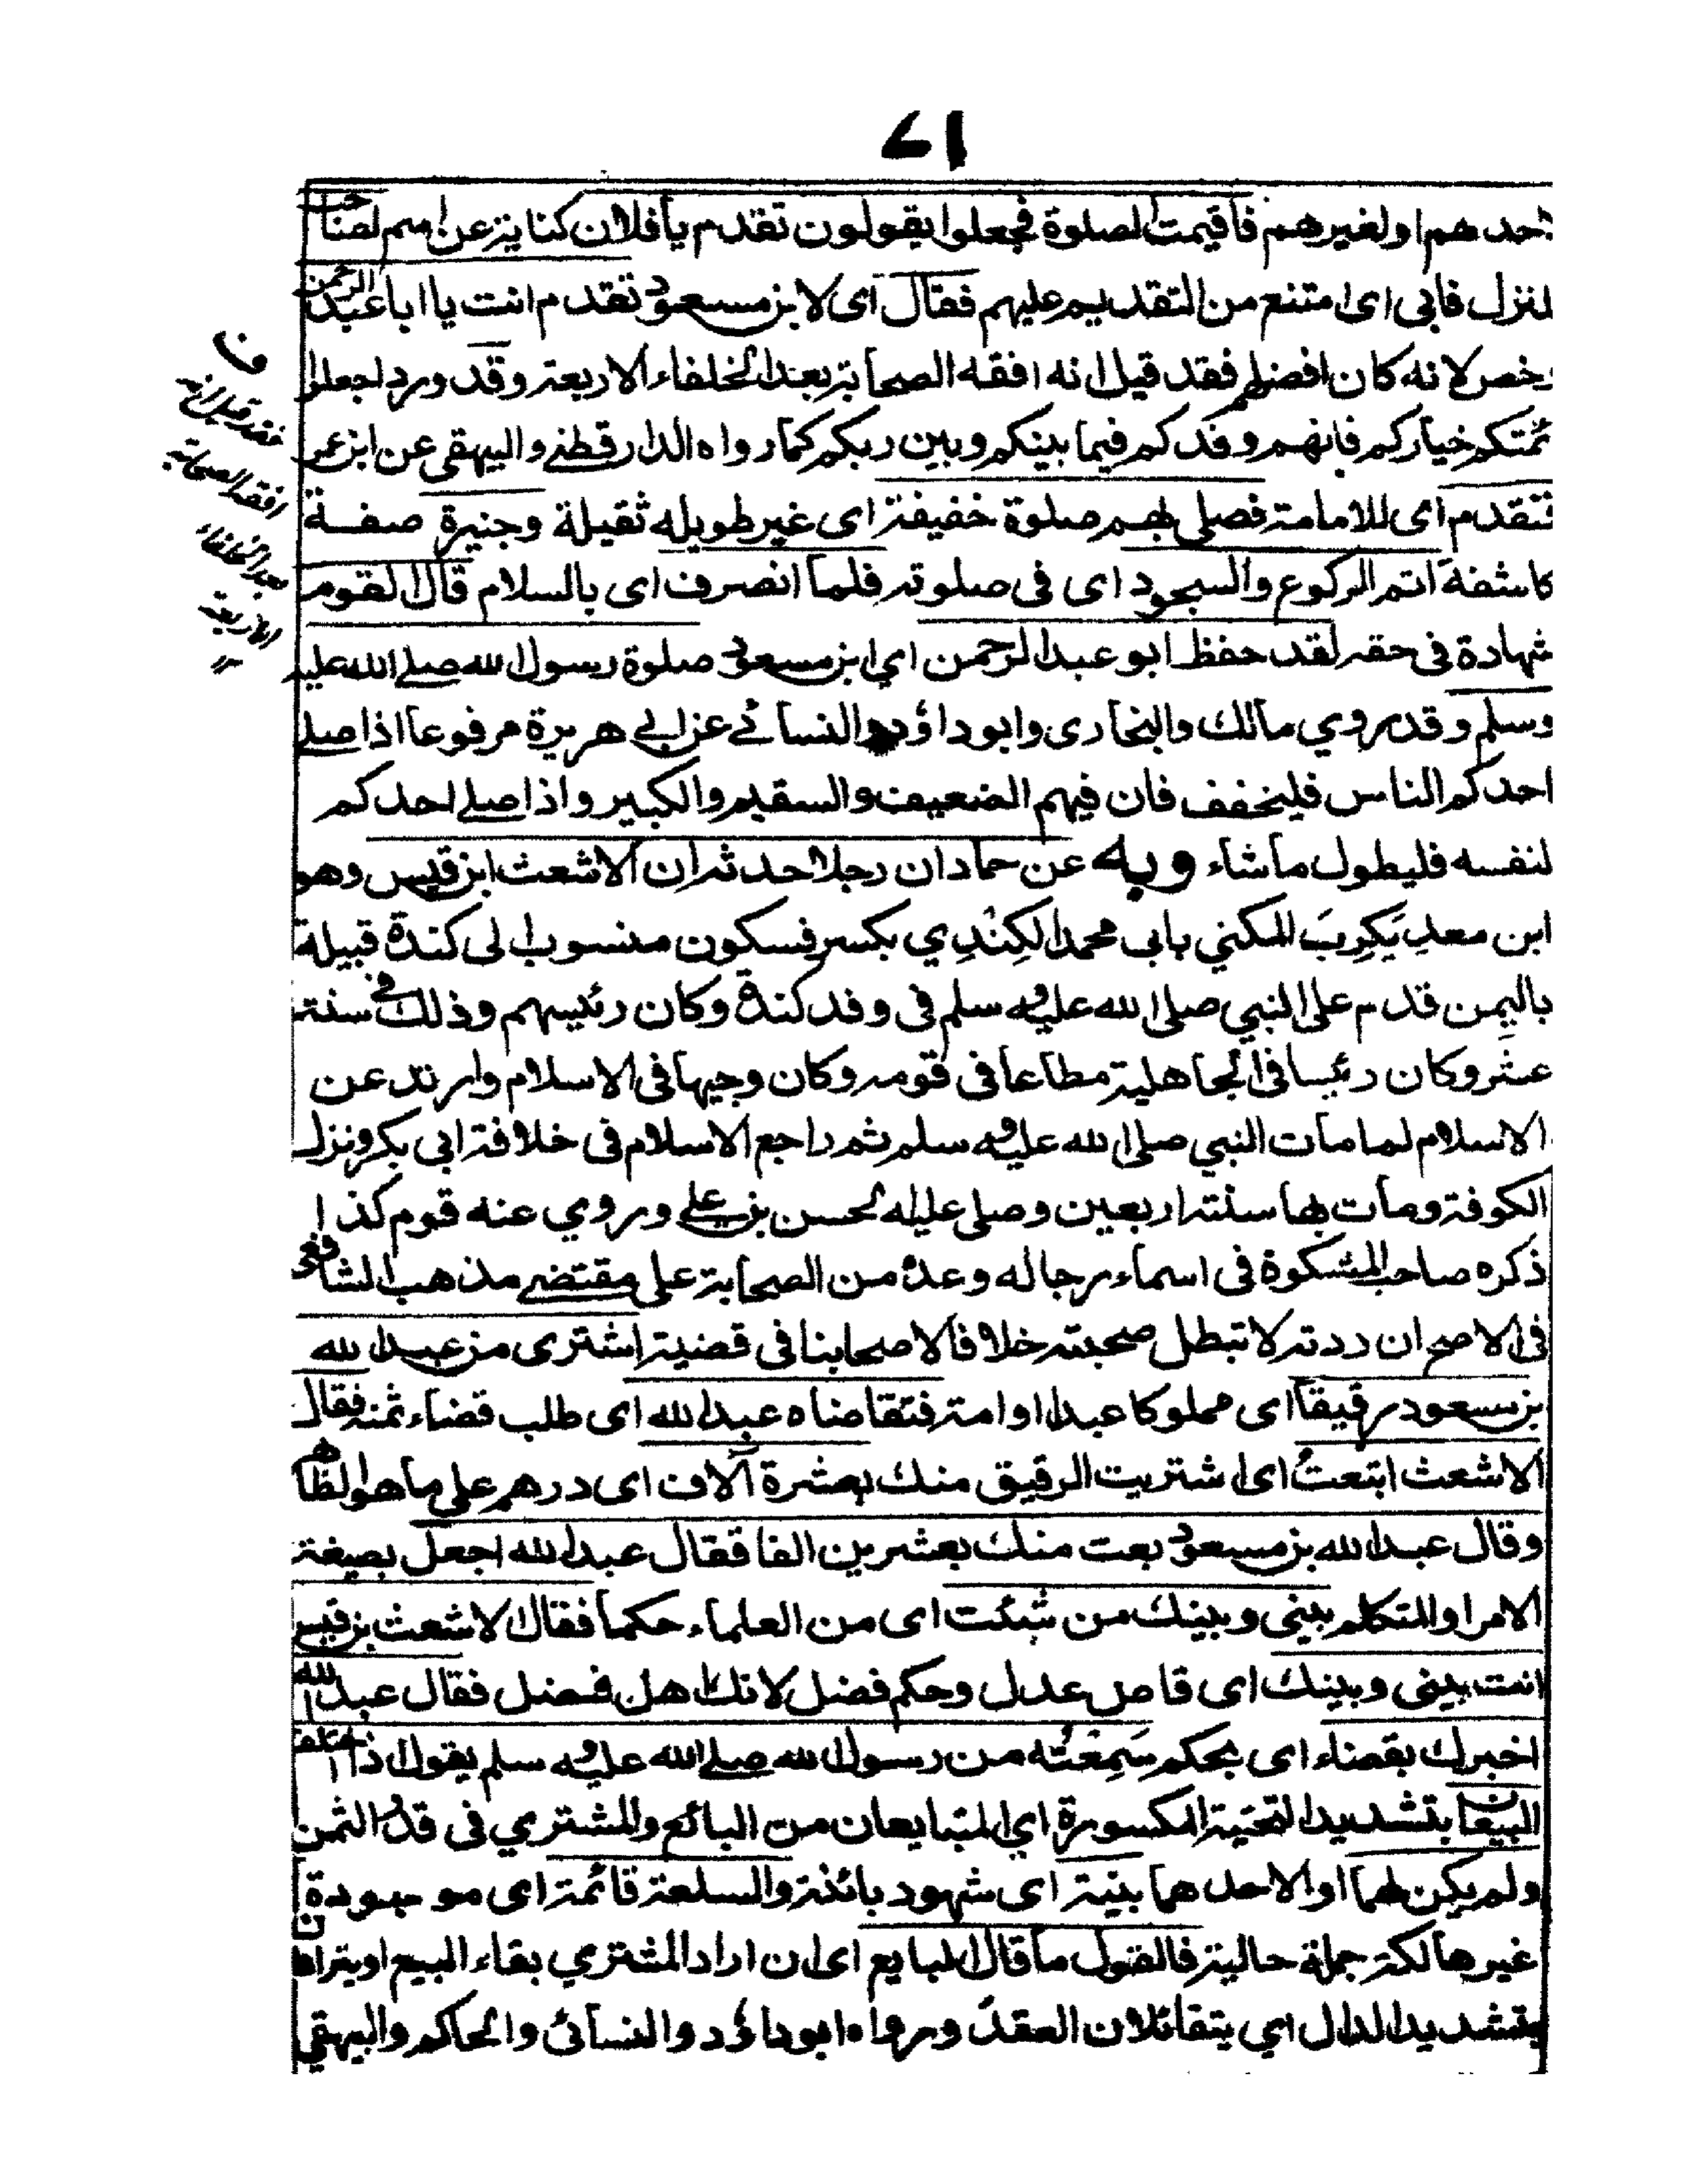 ١٧
احدهم اولغيرهم فاقيمت الصلوة فجعلوا يقولون تقدم يا فلان كناية عن امهم لصاحب
المنزل فابى اى امتنع من التقديم عليهم فقال اى لابن مسعود تقدم انت يا ابا عبد الرحمن
وخص لانه كان افضلهم فقد قيل انه افقه الصحابة بعد الخلفاء الاربعة وقد ورد اجعلوا
ئمتكم خياركم فانهم وفدكم فيما بينكم وبين ربكم كما رواه الدارقطني والبيهقى عن ابن عمر
فتقدم اى للامامة فصلى بهم صلوة خفيفة اى غير طويله ثقيلة وجيزة صفة
كاشفة اتم الركوع والسجود اى فى صلوته فلما انصرف اى بالسلام قال القوم
شهادة فى حقه لقد حفظ ابو عبد الرحمن اي ابن مسعود صلوة رسول الله صلى الله عليه
وسلم وقد روي مالك والبخارى وابوداؤد والنسائے عن ابي هريرة مرفوعا اذا صلى
احدكم الناس فليخفف فان فيهم الضعيف والسقيم والكبير واذا صلے احدكم
لنفسه فليطول ما شاء وبه عن حماد ان رجلا حدثه ان الاشعث ابن قيس وهو
ابن معدِ يَكرِبَ المكني بابى محمد الكِنْدِي بكسر فسكون منسوب الى كندة قبيلة
باليمن قدم على النبي صلى الله عليه وسلم فى وفد كندة وكان رئيسهم وذلك فى سنة
عشر وكان رئيسا فى الجاهلية مطاعا فى قومه وكان وجيها فى الاسلام وارتد عن
الاسلام لما مات النبي صلى الله عليه وسلم ثم راجع الاسلام فى خلافة ابى بكر ونزل
الكوفة ومات بها سنة اربعين وصلى عليه الحسن بن علي وروي عنه قوم كذا
ذكره صاحب المشكوة فى اسماء رجاله وعده من الصحابة على مقتضے مذهب الشافعى
فى الاصح ان ردته لا تبطل صحبته خلافا لاصحابنا فى قضية اشترى من عبد الله
بن مسعود رقيقا اى مملوكا عبدا او امة فتقاضاه عبد الله اى طلب قضاء ثمنه فقال
الاشعث ابتعتُ اى اشتريت الرقيق منك بعشرة آلاف اى درهم على ما هو الظاهر
وقال عبد الله بن مسعود بعت منك بعشرين الفا فقال عبد الله اجعل بصيغة
الامر او المتكلم بينى وبينك من شئت اى من العلماء حكما فقال الاشعث بن قيس
انت بينى وبينك اى قاض عدل وحكم فضل لانك اهل فضل فقال عبد الله
اخبرك بقضاء اى بحكم سَمِعْتُه من رسول الله صلے الله عليه وسلم يقول اذا اختلف
البيعان بتشديد التحتية المكسورة اي المتبايعان من البائع والمشتري فى قدر الثمن
ولم يكن لهما او لاحدهما بنية اى شهود بائنة والسلعة قائمة اى موجودة
غير هالكة جملة حالية فالقول ما قال البايع اى ان اراد المشتري بقاء البيع او يترادان
بتشديد الدال اي يتقائلان العقد ورواه ابوداؤد والنسائى والحاكم والبيهقي
ف
فقد قيل انه
افقه الصحابة
بعد الخلفاء
الاربعة